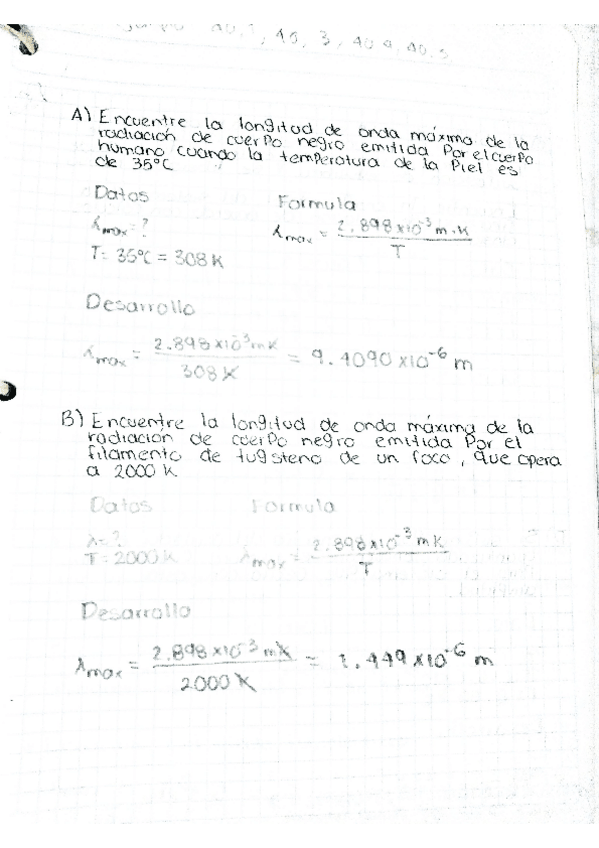 40.1, 40.3, 40.4, 40.5
A) Encuentre la longitud de onda máxima de la
radiación de cuerpo negro emitida Por el cuerpo
humano cuando la temperatura de la Piel es
de 35°C
Datos Formula
λmax = ? λmax = 2.898x10⁻³ m.K / T
T= 35°C = 308 K
Desarrollo
λmax = 2.898x10⁻³mK / 308 K = 9.4090 x10⁻⁶ m
B) Encuentre la longitud de onda máxima de la
radiación de cuerpo negro emitida Por el
filamento de tugsteno de un foco, que opera
a 2000 K
Datos Formula
λ=? λmax = 2.898x10⁻³ mK / T
T= 2000K
Desarrollo
λmax = 2.898x10⁻³ mK / 2000 K = 1.449 x10⁻⁶ m